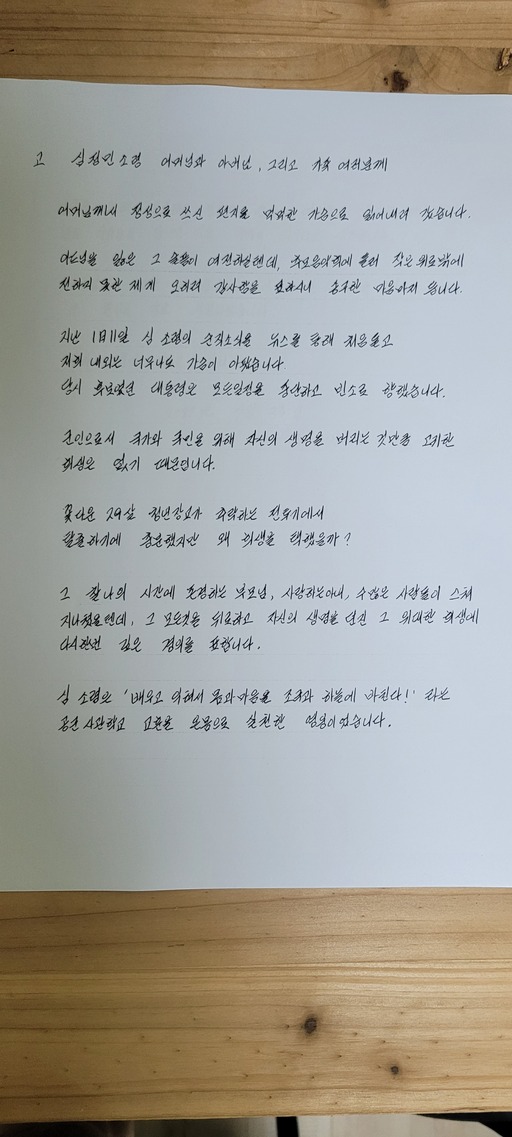 고 심정민 소령 어머님과 아버님, 그리고 가족 여러분께
어머님께서 정성으로 쓰신 편지를 먹먹한 가슴으로 읽어내려 갔습니다.
아드님을 잃은 그 슬픔이 여전하실텐데, 추모음악회에 들러 작은 위로밖에
전하지 못한 제게 오히려 감사함을 표하시니 송구한 마음마저 듭니다.
지난 1월11일 심 소령의 순직소식을 뉴스를 통해 처음 듣고
저희 내외는 너무나도 가슴이 아팠습니다.
당시 후보였던 대통령은 모든일정을 중단하고 빈소로 향했습니다.
군인으로서 국가와 국민을 위해 자신의 생명을 버리는 것만큼 고귀한
희생은 없기 때문입니다.
꽃다운 29살 청년장교가 추락하는 전투기에서
탈출하기에 충분했지만 왜 희생을 택했을까?
그 찰나의 시간에 존경하는 부모님, 사랑하는아내, 수많은 사람들이 스쳐
지나쳤을텐데, 그 모든것을 뒤로하고 자신의 생명을 던진 그 위대한 희생에
다시한번 깊은 경의를 표합니다.
심 소령은 '배우고 익혀서 몸과마음을 조국과 하늘에 바친다!' 라는
공군 사관학교 교훈을 온몸으로 실천한 영웅이었습니다.